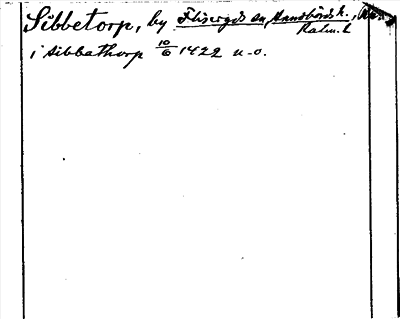 Sibbetorp, by Fliseryds sn, Handbörds h.,
Kalm. l.
i sibbathorp 10/6 1422 u-o.